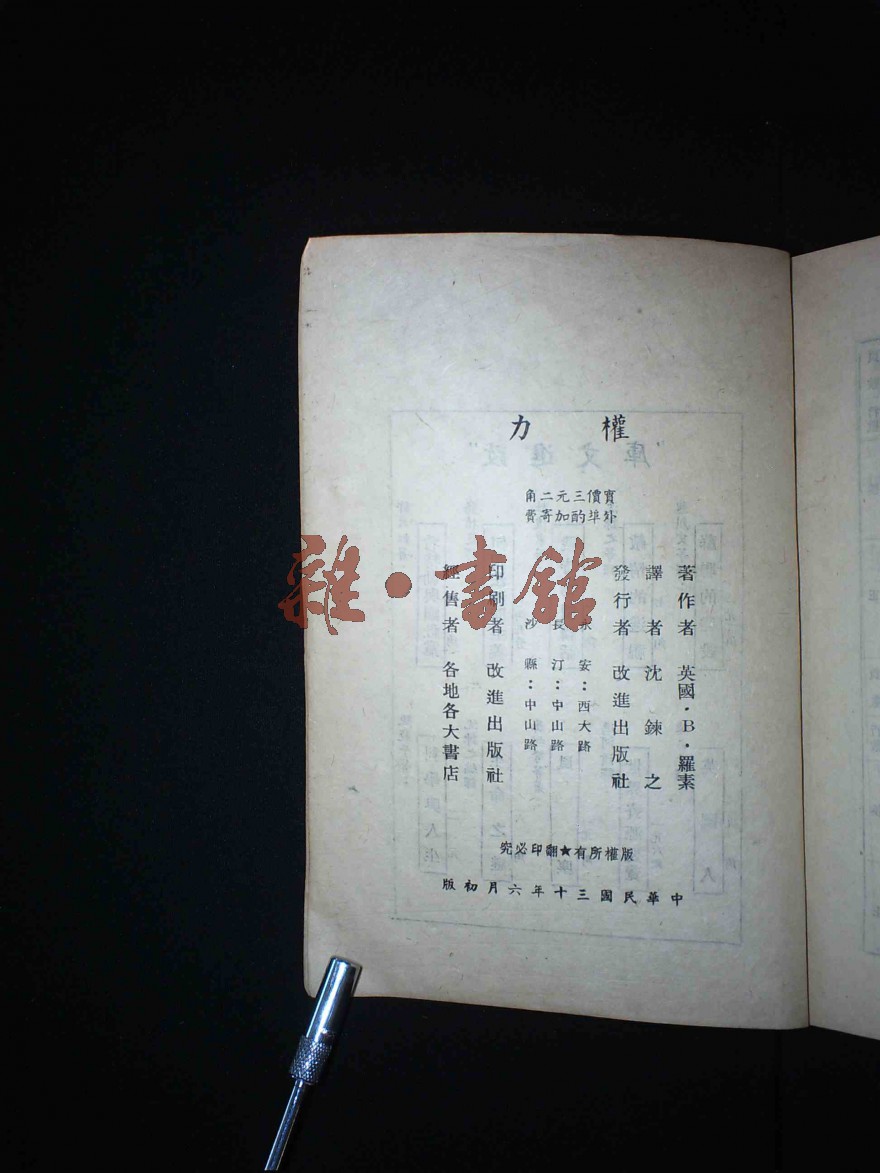 權力
實價三元二角
外埠酌加寄費
著作者 英國·B·羅素
譯者 沈鍊之
發行者 改進出版社
永安：西大路
長汀：中山路
沙縣：中山路
印刷者 改進出版社
經售者 各地各大書店
版權所有★翻印必究
中華民國三十年六月初版
雜·書館
"改進文庫"